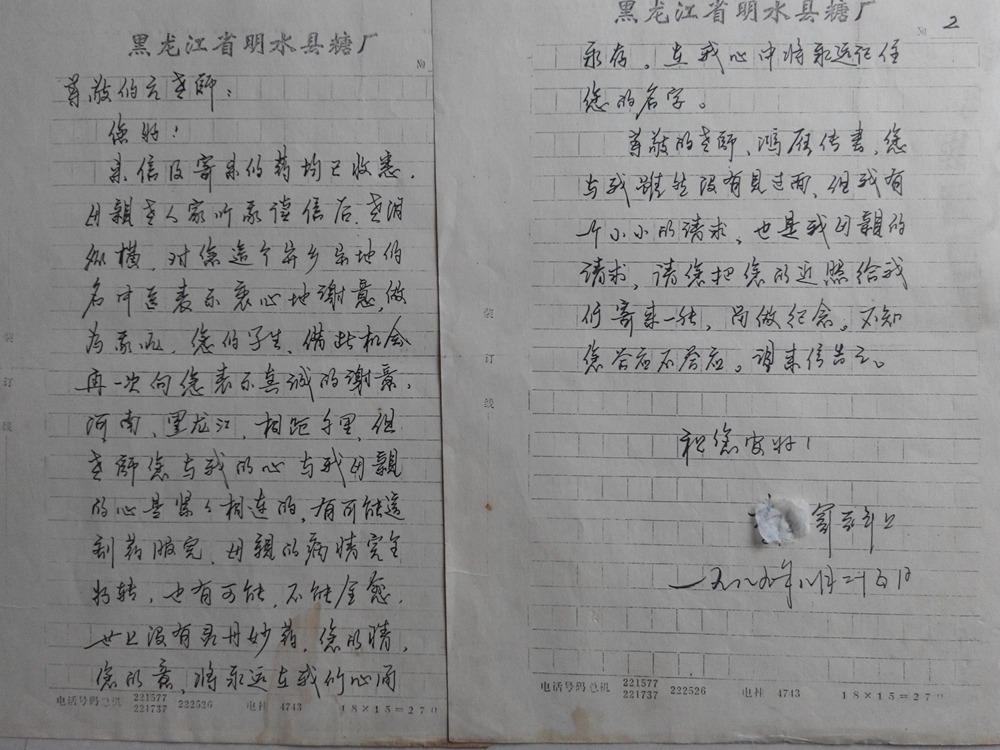 黑龙江省明水县糖厂
№
尊敬的老师：
您好！
来信及寄来的药均已收悉，
母亲老人家听我读信后，老泪
纵横，对您这个异乡异地的
名中医表示衷心地谢意，做
为我，您的学生，借此机会
再一次向您表示真诚的谢意，
河南、黑龙江，相距千里，但
老师您与我的心与我母亲
的心是紧紧相连的，有可能这
剂药服完，母亲的病情完全
好转，也有可能，不能全愈，
世上没有灵丹妙药，您的情，
您的意，将永远在我们心中
装
订
线
电话号码总机 221577 221737 222526 电挂 4743 18×15=270
黑龙江省明水县糖厂
№ 2
永存。在我心中将永远记住
您的名字。
尊敬的老师，鸿雁传书，您
与我虽然没有见过面，但我有
一个小小的请求，也是我母亲的
请求，请您把您的近照给我
们寄来一张，留做纪念。不知
您答应不答应。请来信告之。
祝您安好！
装
订
线
一九八九年八月二十五日
电话号码总机 221577 221737 222526 电挂 4743 18×15=270